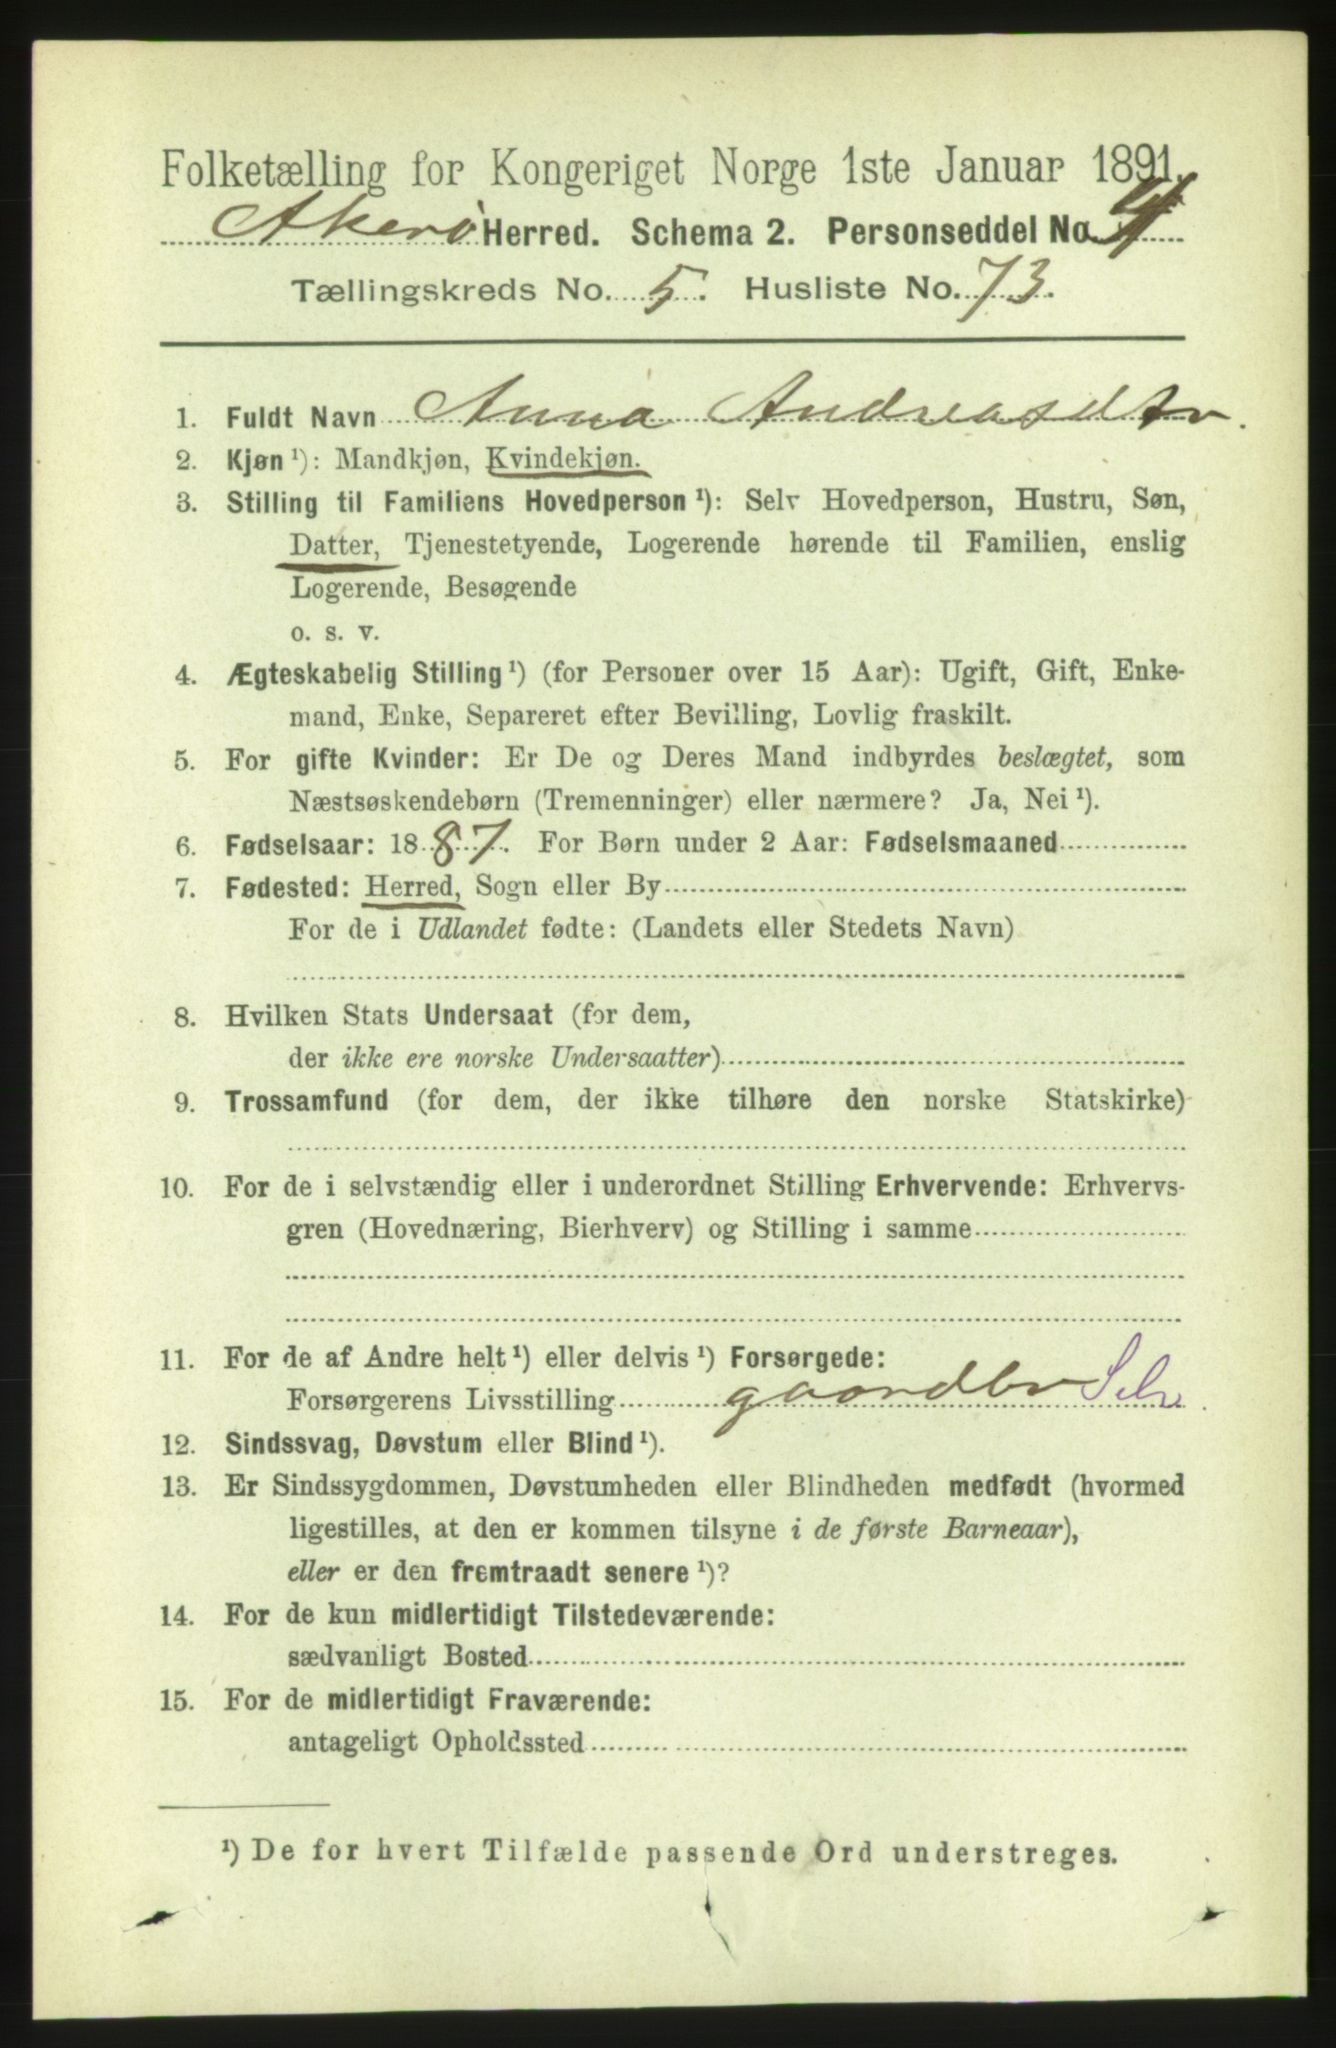 Folketælling for Kongeriget Norge 1ste Januar 1891.
Akerö Herred. Schema 2. Personseddel No. 4
Tællingskreds No. 5. Husliste No. 73.
1. Fuldt Navn Anna Andreasdtr.
2. Kjøn ¹): Mandkjøn, Kvindekjøn.
3. Stilling til Familiens Hovedperson ¹): Selv Hovedperson, Hustru, Søn,
Datter, Tjenestetyende, Logerende hørende til Familien, enslig
Logerende, Besøgende
o. s. v.
4. Ægteskabelig Stilling ¹) (for Personer over 15 Aar): Ugift, Gift, Enke-
mand, Enke, Separeret efter Bevilling, Lovlig fraskilt.
5. For gifte Kvinder: Er De og Deres Mand indbyrdes beslægtet, som
Næstsøskendebørn (Tremenninger) eller nærmere? Ja, Nei ¹).
6. Fødselsaar: 1887. For Børn under 2 Aar: Fødselsmaaned
7. Fødested: Herred, Sogn eller By
For de i Udlandet fødte: (Landets eller Stedets Navn)
8. Hvilken Stats Undersaat (for dem,
der ikke ere norske Undersaatter)
9. Trossamfund (for dem, der ikke tilhøre den norske Statskirke)
10. For de i selvstændig eller i underordnet Stilling Erhvervende: Erhvervs-
gren (Hovednæring, Bierhverv) og Stilling i samme
11. For de af Andre helt ¹) eller delvis ¹) Forsørgede:
Forsørgerens Livsstilling gaardbr Selv.
12. Sindssvag, Døvstum eller Blind ¹).
13. Er Sindssygdommen, Døvstumheden eller Blindheden medfødt (hvormed
ligestilles, at den er kommen tilsyne i de første Barneaar),
eller er den fremtraadt senere ¹)?
14. For de kun midlertidigt Tilstedeværende:
sædvanligt Bosted
15. For de midlertidigt Fraværende:
antageligt Opholdssted
¹) De for hvert Tilfælde passende Ord understreges.